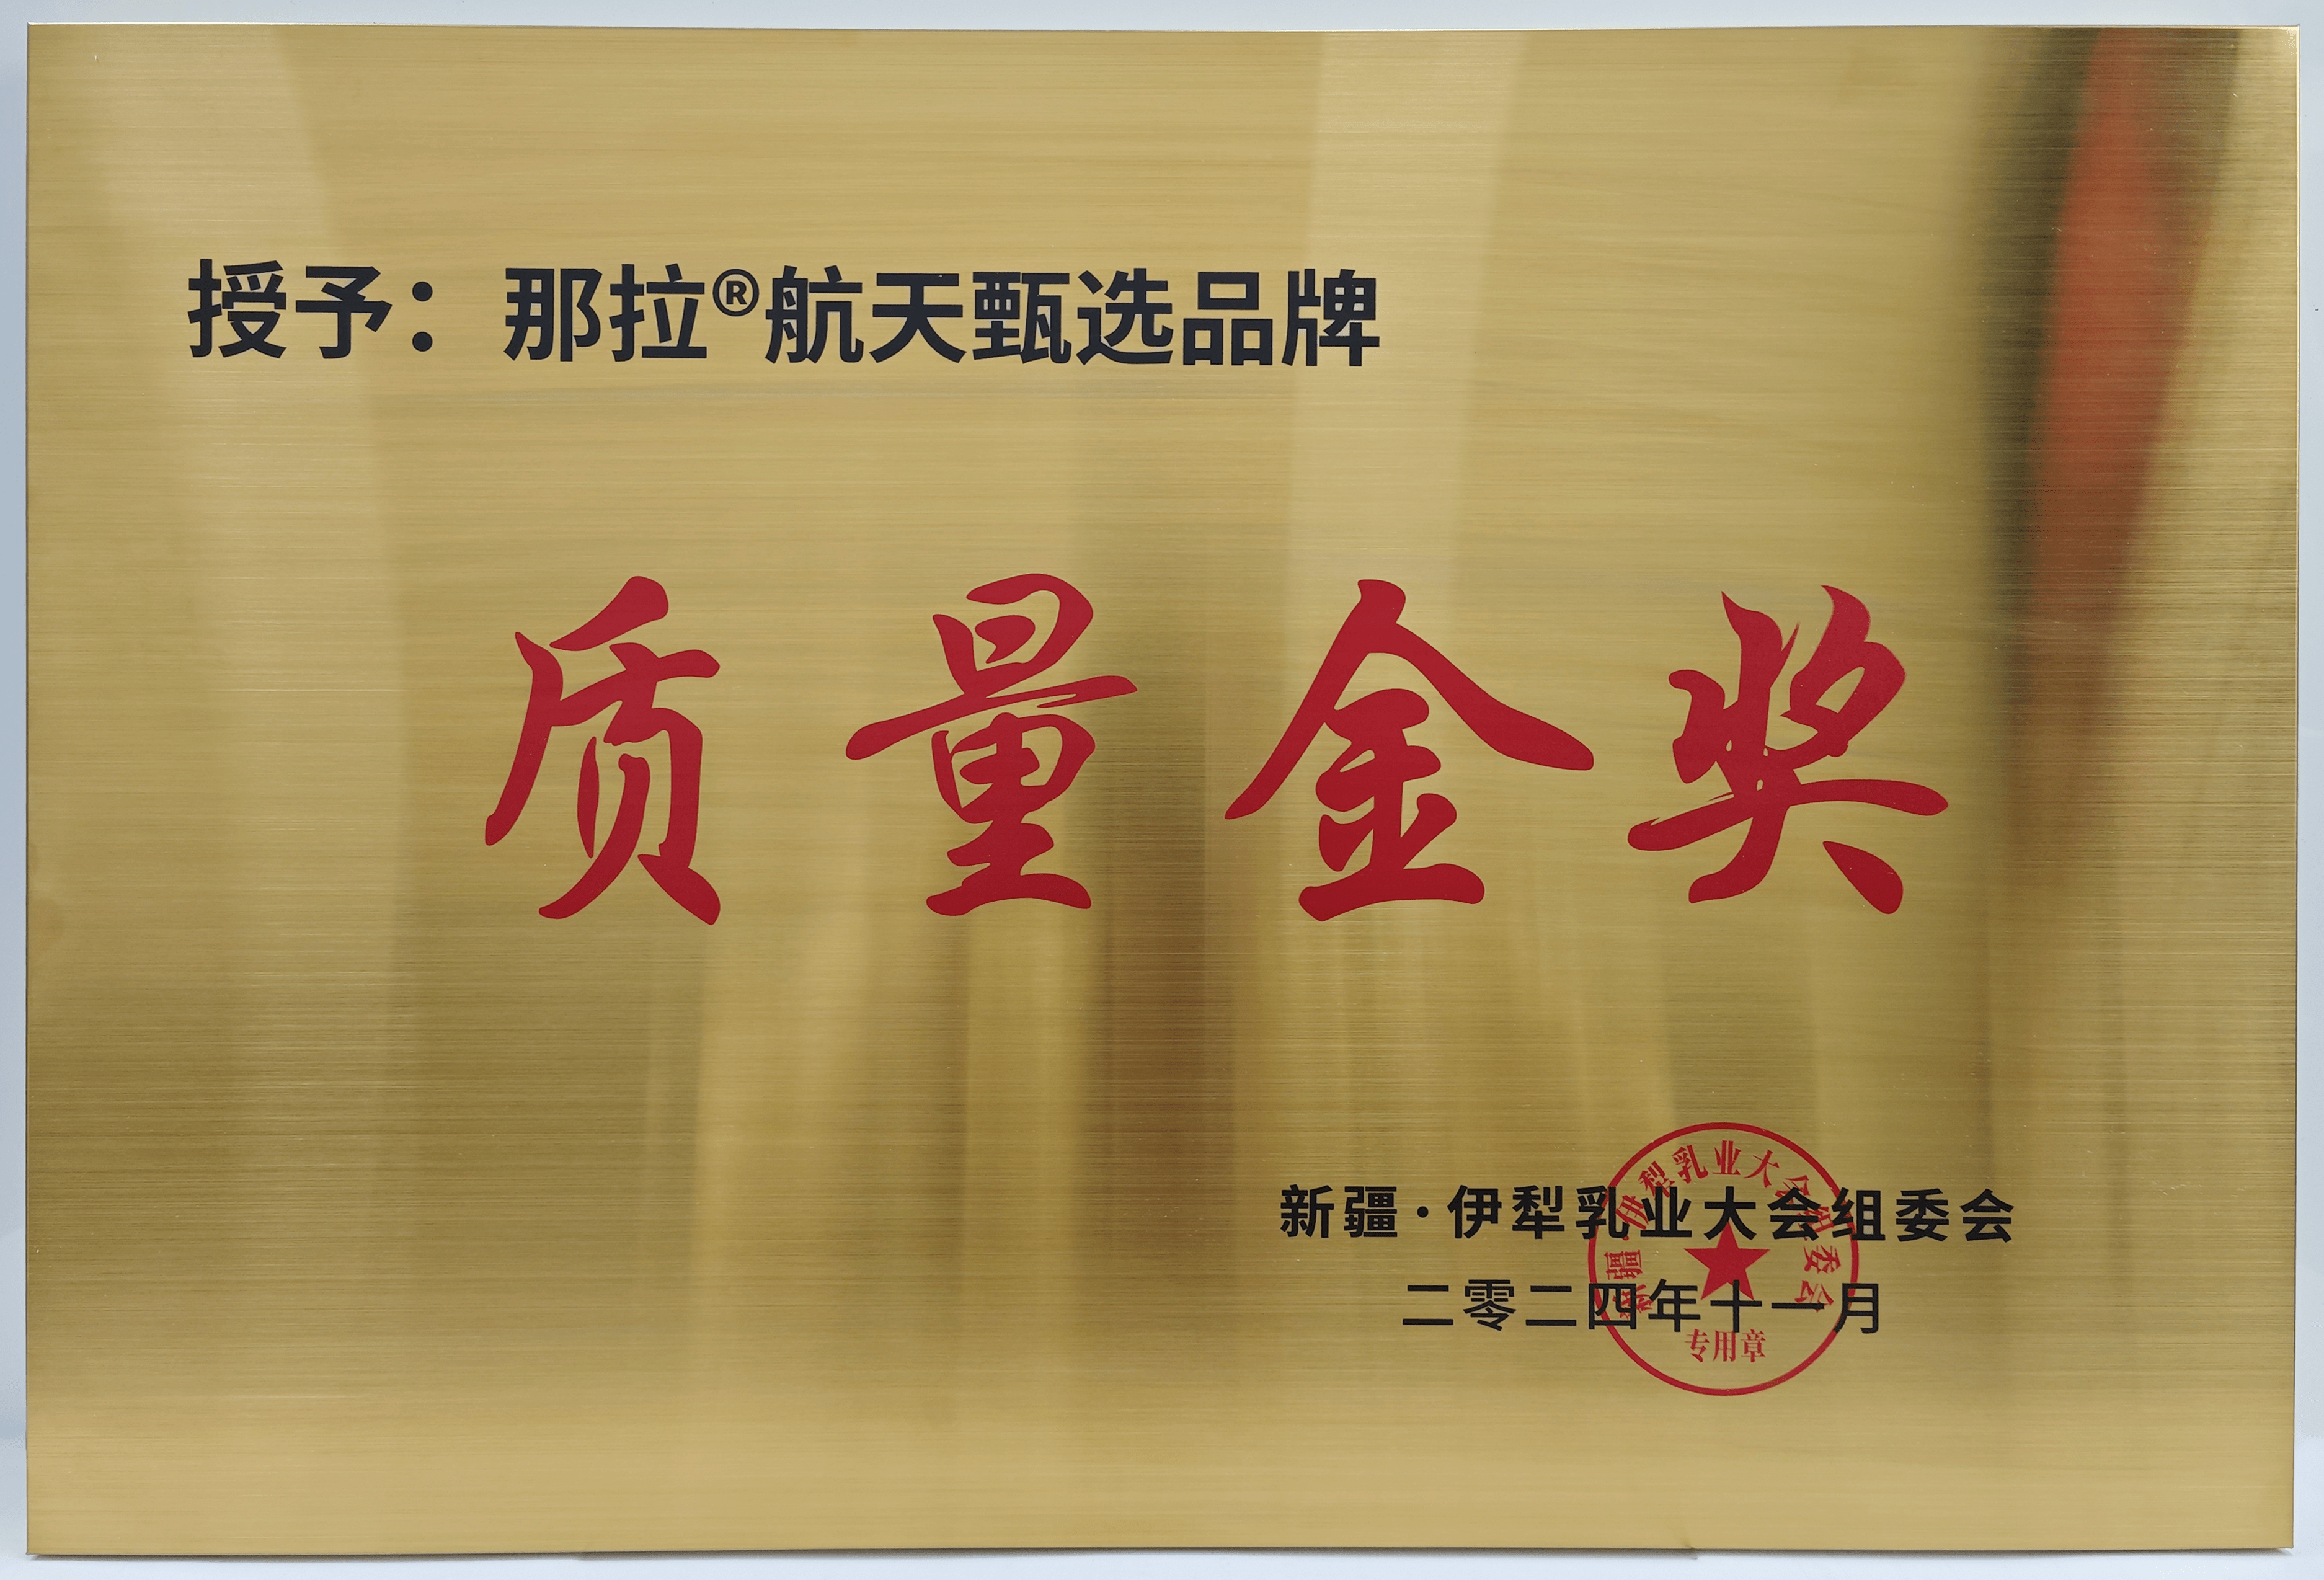 授予：那拉®航天甄选品牌
质量金奖
新疆·伊犁乳业大会组委会
二零二四年十一月
新疆·伊犁乳业大会组委会
专用章